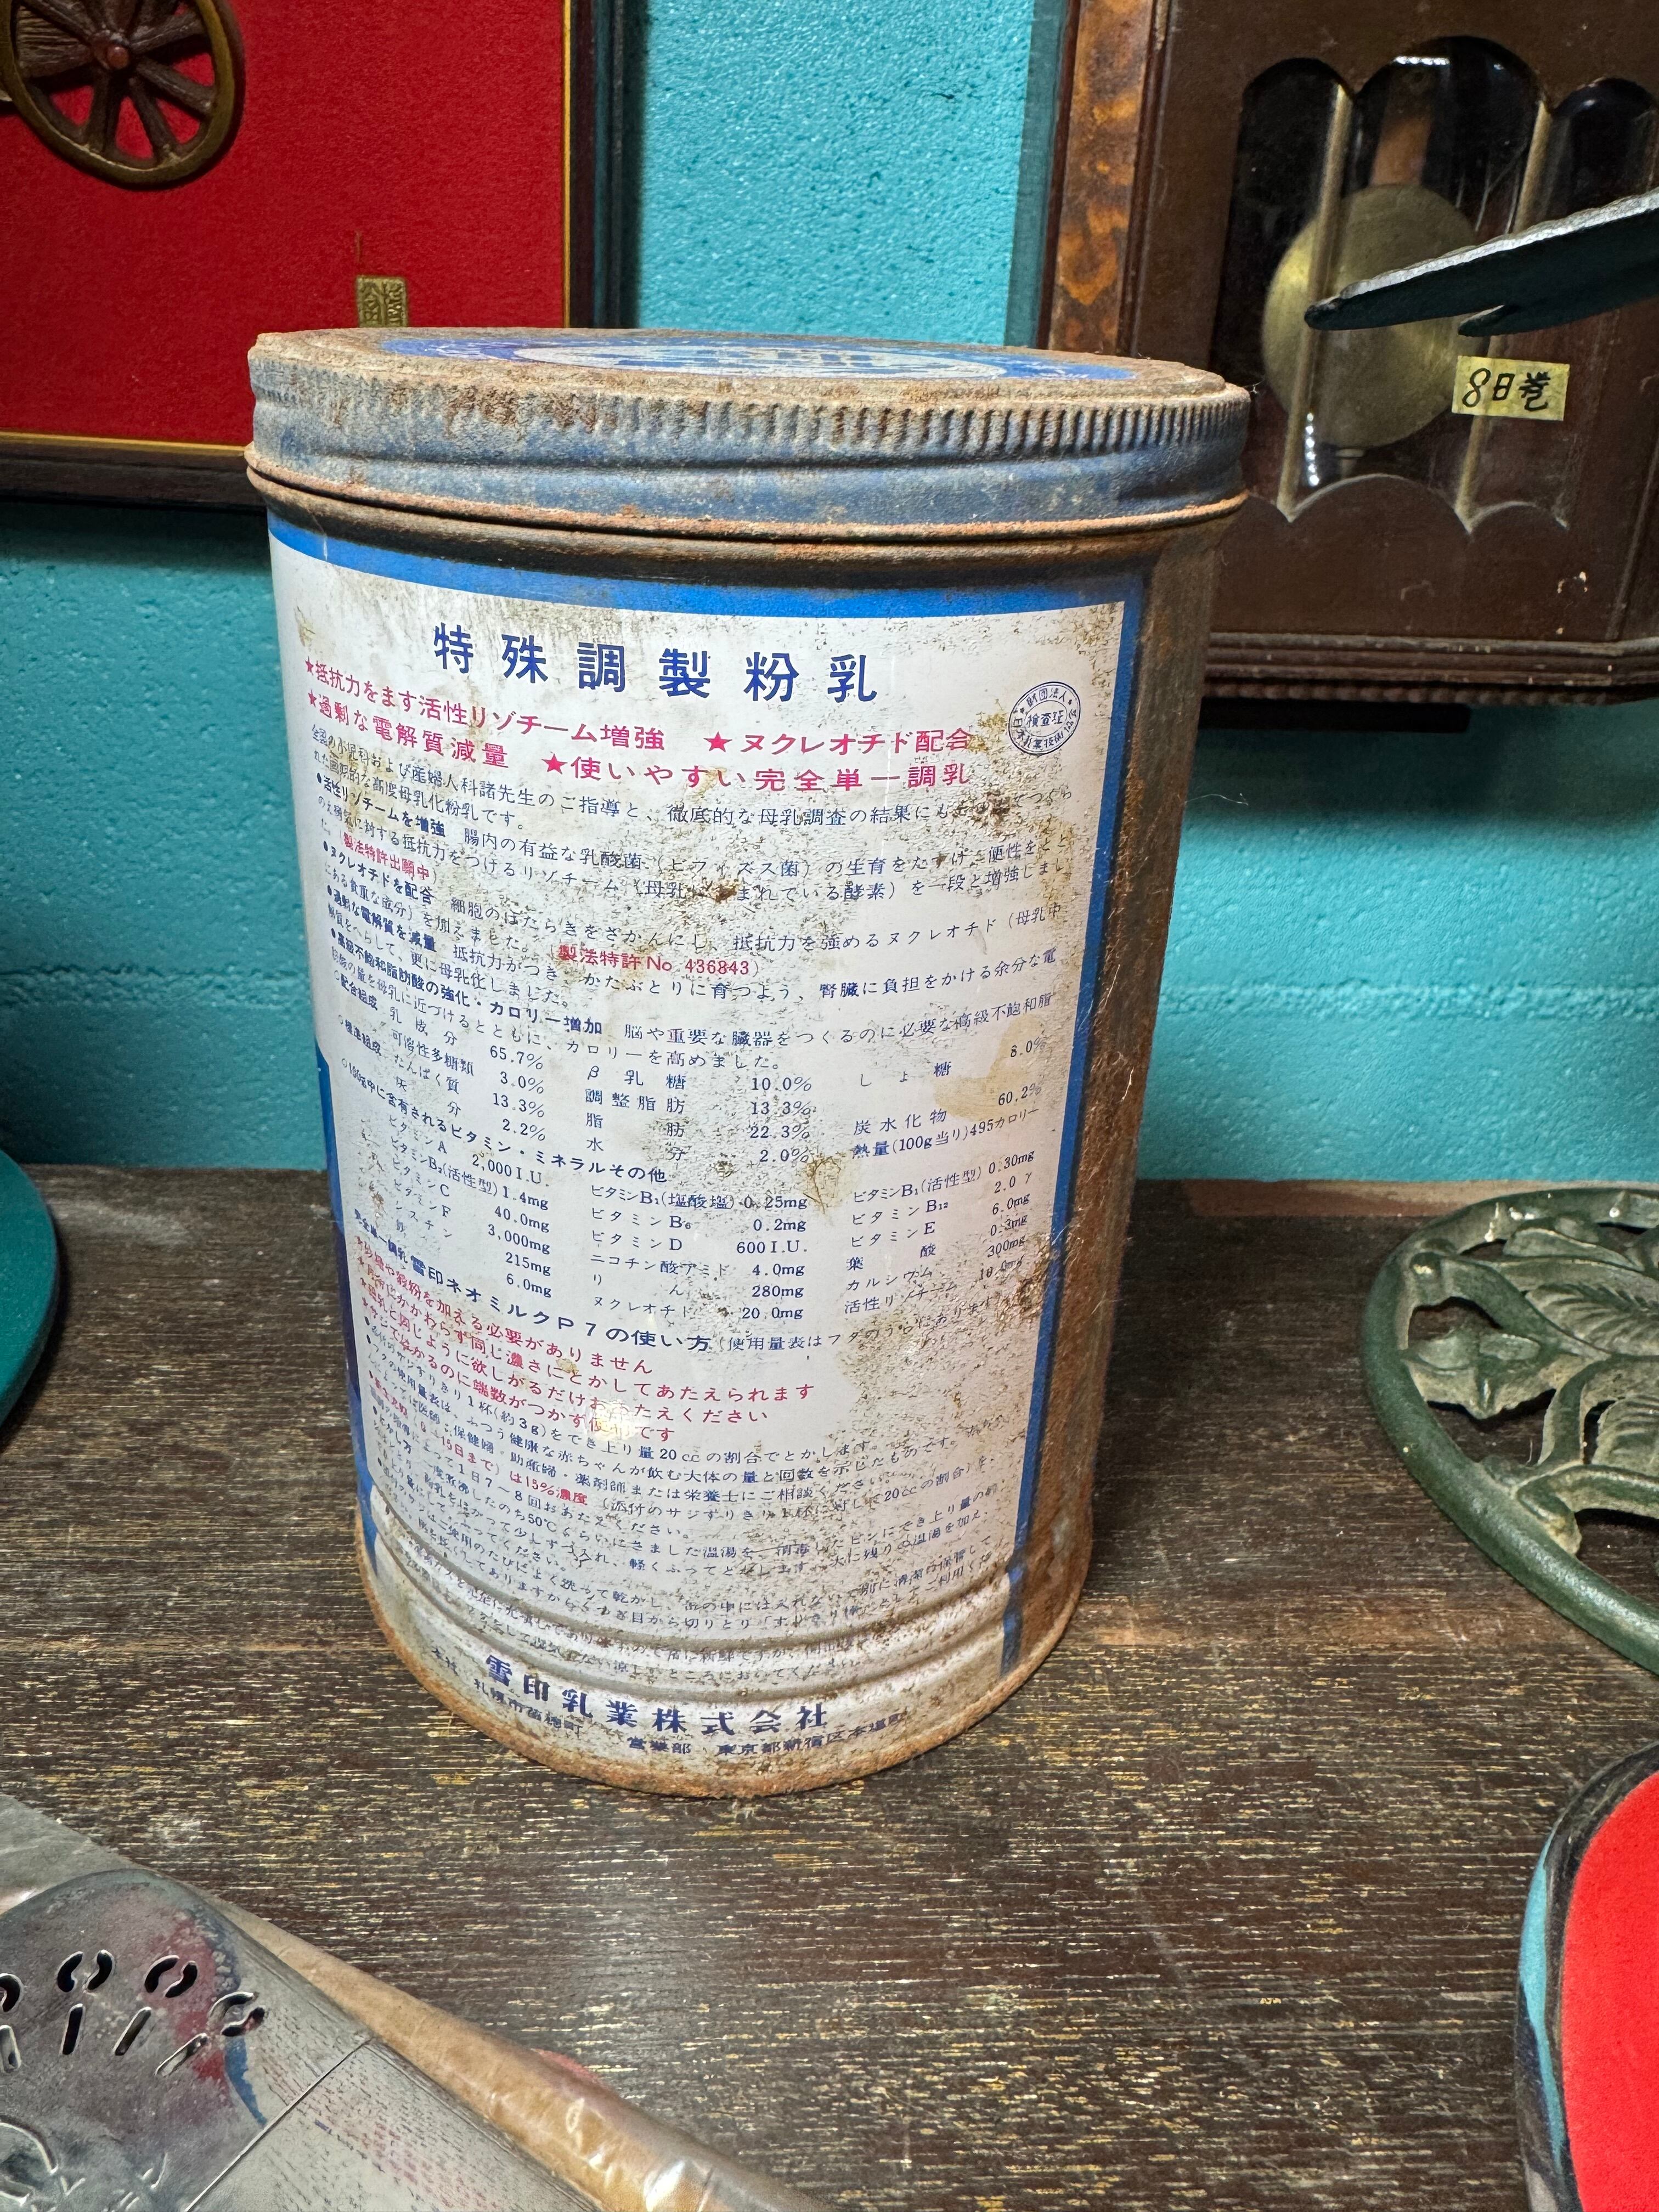 8日巻
特殊調製粉乳
★抵抗力をます活性リゾチーム増強 ★ヌクレオチド配合
★過剰な電解質減量 ★使いやすい完全単一調乳
財団法人
検査証
全国の小児科および産婦人科諸先生のご指導と、徹底的な母乳調査の結果にも
れた画期的な高度母乳化粉乳です。
●活性リゾチームを増強 腸内の有益な乳酸菌（ビフィズス菌）の生育をたすけ、便性をとと
のえ病気に対する抵抗力をつけるリゾチーム（母乳に含まれている酵素）を一段と増強しまし
た。（製法特許出願中）
●ヌクレオチドを配合 細胞のはたらきをさかんにし、抵抗力を強めるヌクレオチド（母乳中
にある貴重な成分）を加えました。（製法特許No 436843）
●過剰な電解質を減量 抵抗力がつき、かたぶとりに育つよう、腎臓に負担をかける余分な電
解質をへらして、更に母乳化しました。
●高級不飽和脂肪酸の強化・カロリー増加 脳や重要な臓器をつくるのに必要な高級不飽和脂
肪酸の量を母乳に近づけるとともに、カロリーを高めました。
○配合組成 乳成分 65.7% β乳糖 10.0% しょ糖 8.0%
可溶性多糖類 3.0% 調整脂肪 13.3%
○標準組成 たんぱく質 13.3% 脂肪 22.3% 炭水化物 60.2%
灰分 2.2% 水分 2.0% 熱量(100g当り)495カロリー
○100g中に含有されるビタミン・ミネラルその他
ビタミンA 2,000I.U. ビタミンB₁(塩酸塩) 0.25mg ビタミンB₁(活性型) 0.30mg
ビタミンB₂(活性型) 1.4mg ビタミンB₆ 0.2mg ビタミンB₁₂ 2.0γ
ビタミンC 40.0mg ビタミンD 600I.U. ビタミンE 6.0mg
ビタミンF 3,000mg ニコチン酸アミド 4.0mg 葉酸 0.3mg
シスチン 215mg りん 280mg カルシウム 300mg
鉄 6.0mg ヌクレオチド 20.0mg 活性リゾチーム 10.0mg
完全単一調乳 雪印ネオミルクP7の使い方 (使用量表はフタのうらにあります)
★砂糖や穀粉を加える必要がありません
★月令にかかわらず同じ濃さにとかしてあたえられます
★母乳と同じように欲しがるだけおあたえください
★サジではかるのに端数がつかず便利です
●添付のサジすりきり1杯(約3g)をでき上り量20ccの割合でとかします。
●フタの使用量表は、ふつう健康な赤ちゃんが飲む大体の量と回数を示したものです。
医師・保健婦・助産婦・薬剤師または栄養士にご相談ください。
15日まで）は15%濃度（添付のサジすりきり1杯に対して20ccの割合）を、
1日7〜8回おあたえください。
●とかし方 一度煮沸したのち50℃くらいにさました温湯を、消毒したビンにでき上り量の
粉乳をはかって少しずつ入れ、軽くふってとかします。
雪印乳業株式会社
本社 札幌市苗穂町
営業部 東京都新宿区本塩町